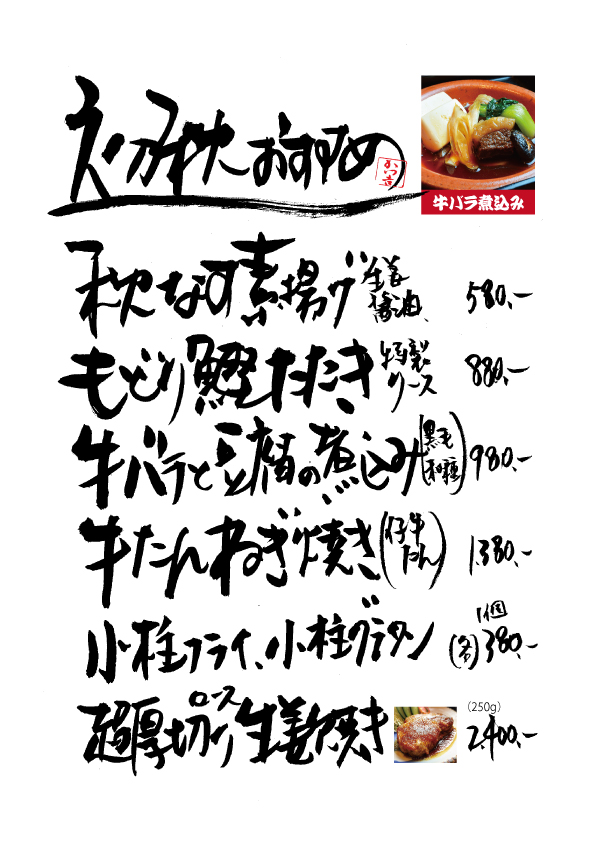 初秋おすすめ
牛バラ煮込み
秋なす素揚げ 生姜醤油、 580.-
もどり鰹たたき 特製ソース 880.-
牛バラと豆腐の煮込み(黒毛和種) 980.-
牛たんねぎ焼き(仔牛たん) 1.380.-
小柱フライ、小柱グラタン 1個(各)380.-
超厚切りロース生姜焼き (250g) 2.400.-